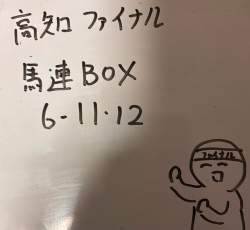 高知 ファイナル
馬連 BOX
6-11・12
ファイナル